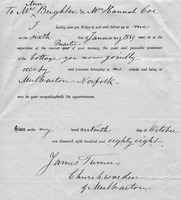 To Mr Brighten & Mr Hannah Coe
I hereby give you Notice to quit and deliver up to me
on the sixth day of January 1889 next, or at the
expiration of the current year of your tenancy, the peaceable and quiet possession
of the Cottage you now jointly
occupy and premises belonging to me situate and being in
Mulbarton Norfolk
now in your occupation with the appurtenances.
Given under my hand this Ninth day of October
one thousand eight hundred and eighty eight
James Turner
Churchwarden
of Mulbarton